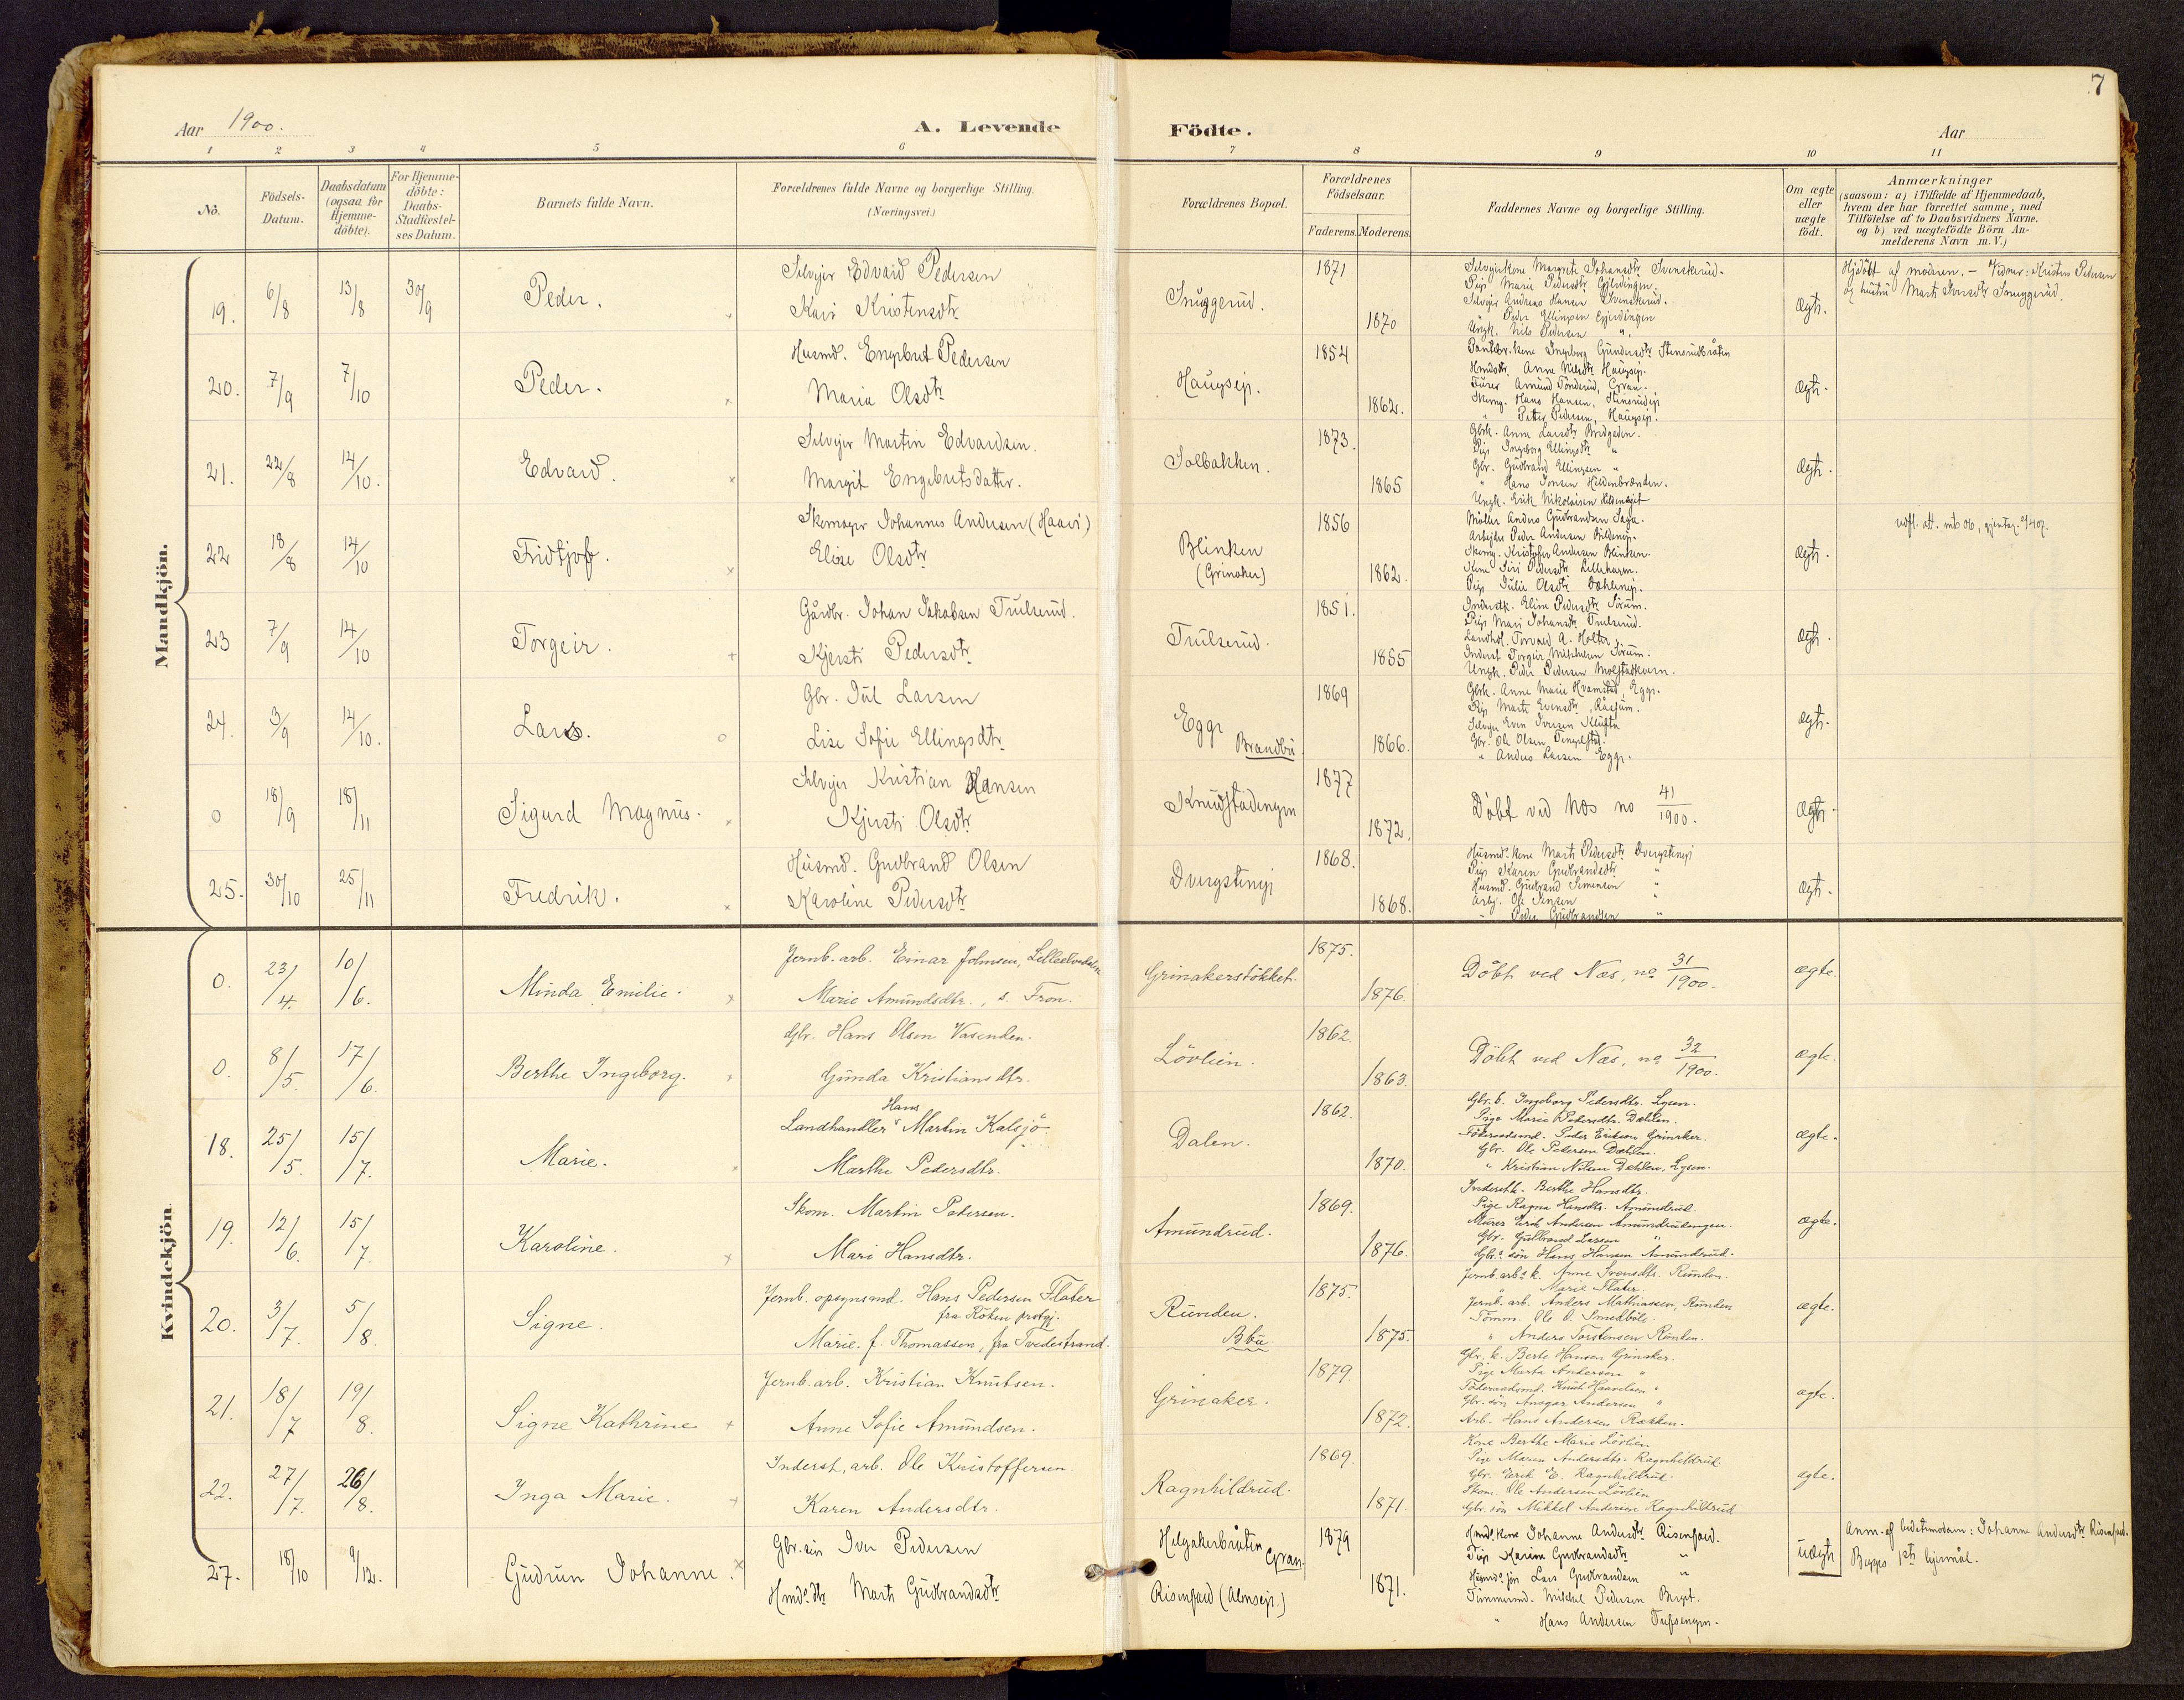 7
Aar 1900. A. Levende Födte. Aar
1 2 3 4 5 6 7 8 9 10 11
No. Födsels-Datum. Daabsdatum (ogsaa for Hjemme-döbte). For Hjemme-döbte: Daabs-Stadfæstel-ses Datum. Barnets fulde Navn. Forældrenes fulde Navne og borgerlige Stilling. (Næringsvei.) Forældrenes Bopæl. Forældrenes Födselsaar. Faderens. Moderens. Faddernes Navne og borgerlige Stilling. Om ægte eller uægte födt. Anmærkninger (saasom: a) i Tilfælde af Hjemmedaab, hvem der har forrettet samme, med Tilföielse af to Daabsvidners Navne. og b) ved uægtefödte Börn An-melderens Navn m.V.)
Mandkjön.
19. 6/8 13/8 30/9 Peder. Selvejer Edvard Pedersen
Kari Kristensdtr
Snuggerud. 1871 1870
Selvejerkone Margrete Johansdtr Svenskerud.
Pige Marie Pedersdtr Gjerdingen.
Selvejer Andreas Hansen Svenskerud.
" Peder Ellingsen Gjerdingen
Ungk. Nils Pedersen "
Ægte. Hjdöbt af moderen. – Vidner: Kristen Pedersen
og hustru Marte Snuggerud.
20. 7/9 7/10 Peder. Husmd. Engebret Pedersen
Maria Olsdtr
Haugseje. 1854 1862.
Ingeborg Gundersdtr Stensrudbråten
Anne Nilsdtr Haugsej.
Amund Tönderud, Gran.
Skomg. Hans Hansen, Stensrudeje
" Petter Pedersen, Haugsej.
Ægte.
21. 22/8 14/10. Edvard. Selvejer Martin Edvardsen.
Margit Engebretsdatter.
Solbakken. 1873. 1865
Gbrk. Anne Larsdtr
Pige Ingeborg Ellingsdtr "
Gbr. Gudbrand Ellingsen "
" Hans Jonsen Hildenbrænden.
Ungk. Erik Nikolaisen
Ægte.
22 18/8 14/10 Fridtjof. Skomager Johannes Andersen (Haavi)
Elise Olsdtr
Blinken
(Grinaker) 1856 1862.
Möller Anders Gudbrandsen Saga.
Arbejder Peder Andersen
Skomg. Kristofer Andersen Blinken.
Kone Siri Pedersdtr Lillehagen.
Pige Julie Olsdtr Dæhlenej.
Ægte.
23 7/9 14/10 Torgeir. Gårdbr. Johan Jakobsen Trulserud.
Kjersti Pedersdtr
Trulserud. 1851. 1855
Inderstk. Eline Pedersdtr Sörum.
Pige Mari Johansdtr Trulserud.
Landhdl. Torvald A. Holter.
Inderst Torgeir Mikkelsen Sörum.
Ungk. Peder Pedersen Molstadkvern.
Ægte.
24. 3/9 14/10. Lars. Gbr. Jul Larsen
Lise Sofie Ellingsdtr.
Egge
Brandbu 1869 1866.
Gbrk. Anne Marie Hvamstad, Egge.
Pige Marte Evensdtr, Råssum.
Selvejer Even Iversen Klufta
Gbr. Ole Olsen Tingelstad.
" Anders Larsen Egge.
Ægte.
0 18/9 18/11 Sigurd Magnus. Selvejer Kristian Hansen
Kjersti Olsdtr
Knudstadengen 1877 1872.
Döbt ved Nes no 41/1900.
Ægte.
25. 30/10 25/11 Fredrik. Husmd. Gudbrand Olsen
Karoline Pedersdtr
Dvergsteneje 1868. 1868.
Husmd.kone Marte Pedersdtr Dvergsteneje
Pige Karen Gudbrandsdtr "
Husmd. Gudbrand Simensen "
Arbj. Ole Jensen "
" Peder Gudbrandsen "
Ægte.
Kvindekjön.
0. 23/4. 10/6. Minda Emilie. Jernb. arb. Einar Johnsen, Lilleelvedalen
Marie Amundsdtr., s. Fron.
Grinakerstökket. 1875. 1876.
Döbt ved Næs, no 31/1900.
ægte.
0. 8/5. 17/6. Berthe Ingeborg. Gbr. Hans Olsen Vasenden.
Gunda Kristiansdtr.
Lövlien. 1862. 1863.
Döbt ved Næs, no 32/1900.
ægte.
18. 25/5. 15/7. Marie. Hans
Landhandler Martin Kalsjö.
Marthe Pedersdtr.
Dalen. 1862. 1870.
Ingeborg Pedersdtr. Lysen.
Pige Marie Pedersdtr. Dæhlen.
Föderaadsmd. Peder Eriksen Grinaker.
Gbr. Ole Pedersen Dæhlen.
" Kristian Nilsen Dæhlen, Lysen.
ægte.
19. 12/6. 15/7. Karoline. Skom. Martin Pedersen.
Mari Hansdtr.
Amundrud. 1869. 1876.
Inderstk. Berthe Hansdtr.
Pige Ragna Hansdtr. Amundrud.
Murer Erik Andersen Amundrudengen.
Gbr. Gulbrand Larsen "
Gbr.s sön Hans Hansen Amundrud.
ægte.
20. 3/7. 5/8. Signe. Jernb. opsynsmd. Hans Pedersen Flater
fra Röken prestgj.
Marie f. Thomassen, fra Tvedestrand.
Runden.
Bbu 1875. 1875.
Jernb. arb.s k. Anne Svensdtr. Runden.
" Marie Flater.
Jernb. arb. Anders Mathiassen, Runden
Tömm. Ole O. Smedböle.
" Anders Torstensen Runden.
ægte.
21. 18/7 19/8. Signe Kathrine Jernb. arb. Kristian Knutsen.
Anne Sofie Amundsen.
Grinaker. 1879. 1872.
Gbr. k. Berte Hansen Grinaker.
Pige Marte Andersen "
Föderaadsmd. Knut Haavelsen "
Gbr. sön Ansgar Andersen "
Arb. Hans Andersen Rækken.
ægte.
22. 27/7. 26/8. Inga Marie. Inderst, arb. Ole Kristoffersen.
Karen Andersdtr.
Ragnhildrud. 1869. 1871.
Kone Berthe Marie Lövlien
Pige Maren Andersdtr. Ragnhildrud
Gbr. Erik E. Ragnhildrud.
Skom. Ole Andersen Lövlien
Gbr. sön Mikkel Andersen Ragnhildrud
ægte.
27. 18/10 9/12. Gudrun Johanne. Gbr. sön Iver Pedersen
Hmds.dtr Marte Gudbrandsdtr
Helgakerbråten
Gran.
Risenfald (Almsej.) 1879 1871.
Hmds.kone Johanne Andersdtr Risenfald.
Pige Karine Gudbrandsdtr "
Husmd.s sön Lars Gudbrandsen "
Tömmermd. Mikkel Pedersen
" Hans Andersen
uægte Anm. af bedstemoderen: Johanne Andersdtr Risenfald.
Begges 1ste lejermål.